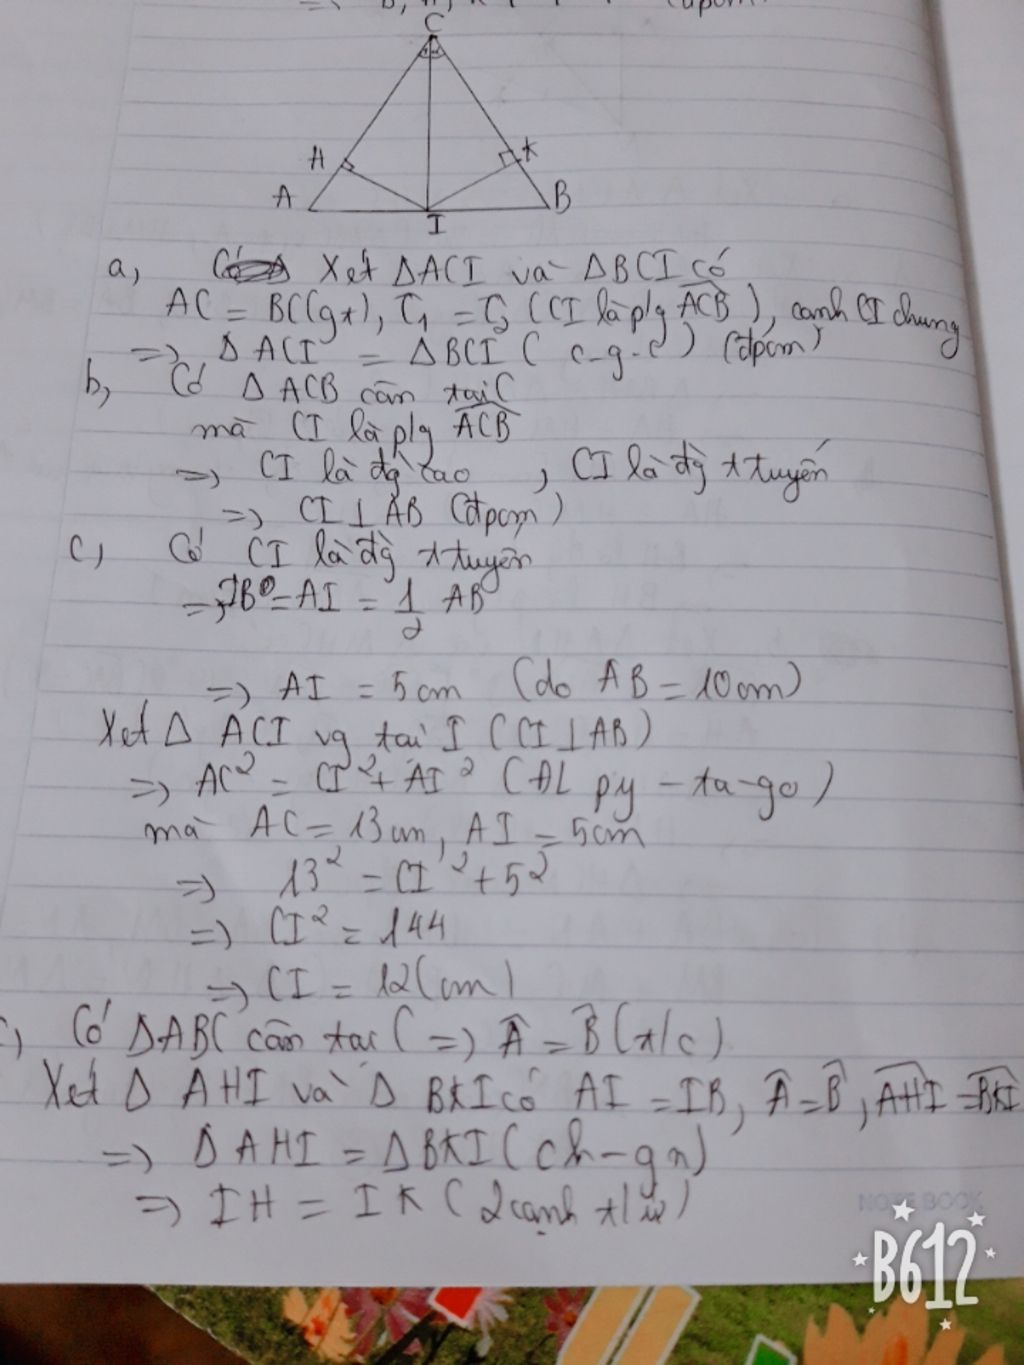 C
H
K
A
B
I
a, Xét ΔACI và ΔBCI có
AC = BC (gt), Ĉ1 = Ĉ2 (CI là p/g ACB), cạnh CI chung
=> ΔACI = ΔBCI ( c-g-c ) (đpcm)
b, Có ΔACB cân tại C
mà CI là p/g ACB
=> CI là đg cao , CI là đg t tuyến
=> CI ⊥ AB (đpcm)
c, Có CI là đg t tuyến
=> IB = AI = 1/2 AB
=> AI = 5cm (do AB = 10cm)
Xét Δ ACI vg tại I (CI ⊥ AB)
=> AC² = CI² + AI² (ĐL py-ta-go)
mà AC = 13cm, AI = 5cm
=> 13² = CI² + 5²
=> CI² = 144
=> CI = 12(cm)
c) Có ΔABC cân tại C => Â = B̂ (t/c)
Xét Δ AHI và Δ BKI có AI = IB, Â = B̂, AHI = BKI
=> ΔAHI = ΔBKI (ch-gn)
=> IH = IK (2 cạnh t/ư)
NOTE BOOK
B612